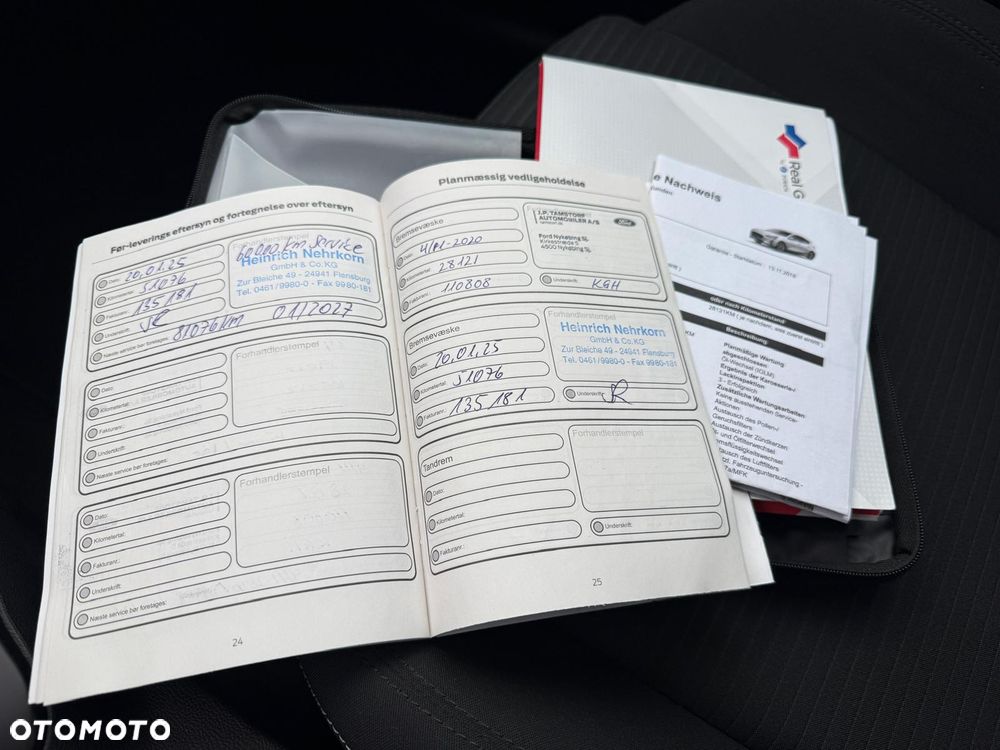 Før-leverings eftersyn og fortegnelse over eftersyn
Dato: 20.01.25
Kilometertal: 51076
Fakturanr.: 135181
Underskrift:
Næste service bør foretages: 81076km 01/2027
Forhandlerstempel
60.000 km Service
Heinrich Nehrkorn
GmbH & Co.KG
Zur Bleiche 49 - 24941 Flensburg
Tel. 0461/9980-0 - Fax 9980-181
Dato:
Kilometertal:
Fakturanr.:
Underskrift:
Næste service bør foretages:
Forhandlerstempel
Dato:
Kilometertal:
Fakturanr.:
Underskrift:
Næste service bør foretages:
Forhandlerstempel
24
Planmæssig vedligeholdelse
Bremsevæske
Dato: 4/01-2020
Kilometertal: 28121
Fakturanr.: 110808
Forhandlerstempel
J.P. TAMSTORF
AUTOMOBILER A/S
Ford
Ford Nykøbing Sj.
4500 Nykøbing Sj.
Underskrift: KGH
Bremsevæske
Dato: 20.01.25
Kilometertal: 51076
Fakturanr.: 135181
Forhandlerstempel
Heinrich Nehrkorn
GmbH & Co.KG
Zur Bleiche 49 - 24941 Flensburg
Tel. 0461/9980-0 - Fax 9980-181
Underskrift:
Tandrem
Dato:
Kilometertal:
Fakturanr.:
Forhandlerstempel
Underskrift:
25
Real G
e Nachweis
Garantie - Startdatum: 13.11.2018
oder nach Kilometerstand
28121KM ( je nachdem, was zuerst eintritt )
Beschreibung
Planmäßige Wartung
abgeschlossen:
Öl-Wechsel (IOLM)
Ergebnis der Karosserie-/
Lackinspektion
3 - Erfolgreich
Zusätzliche Wartungsarbeiten:
Keine ausstehenden Service-
Aktionen
Austausch des Pollen-/
Geruchsfilters
Austausch der Zündkerzen
- und Ölfilterwechsel
emsflüssigkeitswechsel
tausch des Luftfilters
zl. Fahrzeuguntersuchung -
OTOMOTO